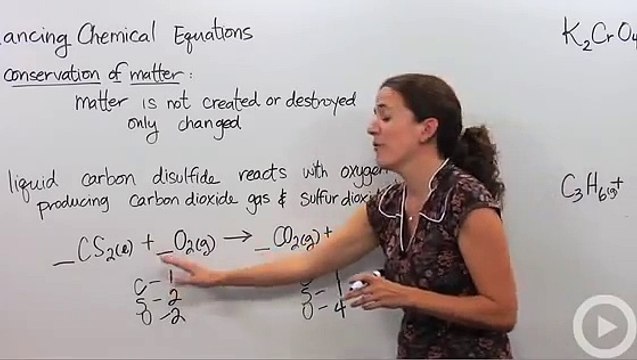 ancing Chemical Equations
K₂CrO₄
conservation of matter:
matter is not created or destroyed
only changed
liquid carbon disulfide reacts with oxygen
producing carbon dioxide gas & sulfur dioxi
_CS₂(l) + _O₂(g) → _CO₂(g) +
C₃H₆(g) +
C - 1
S - 2
O - 2
S - 1
O - 4